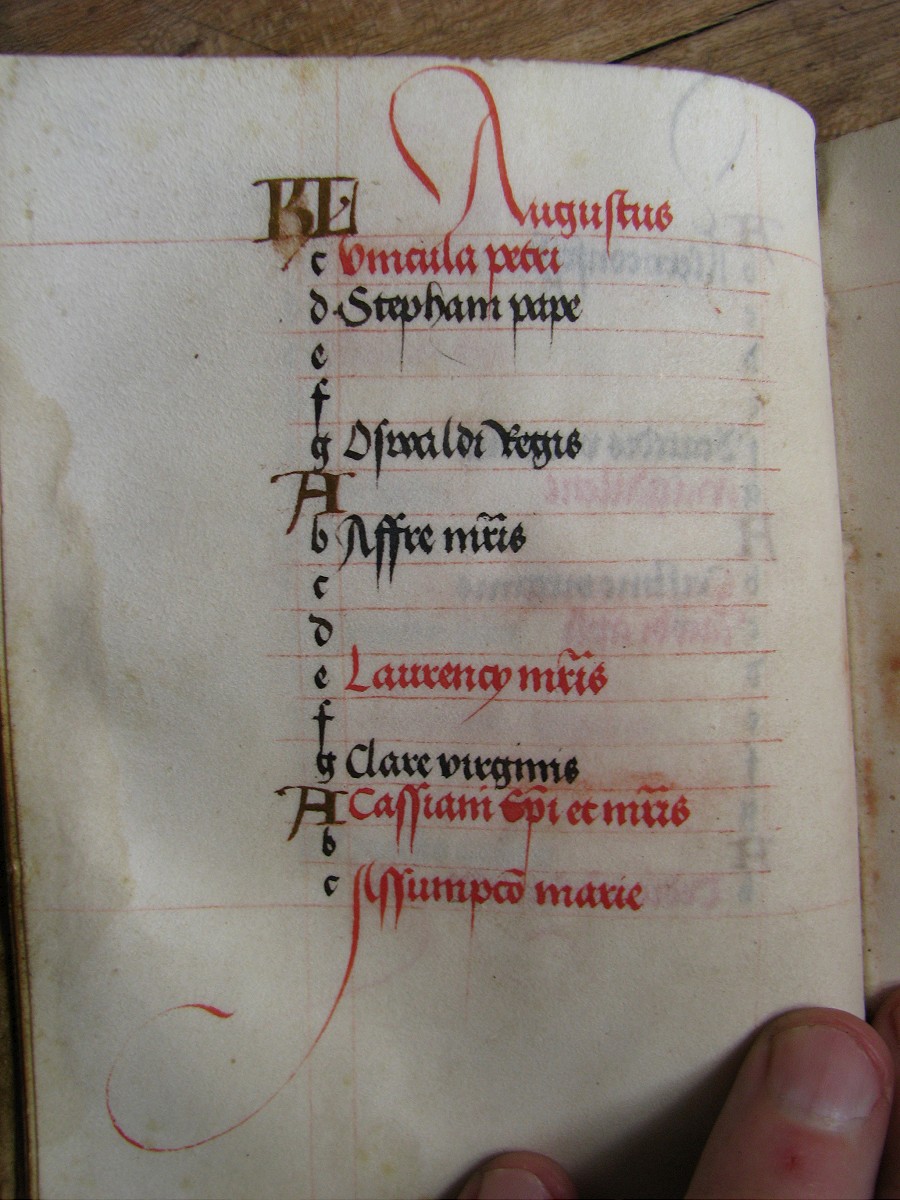 KL Augustus
c Vincula petri
d Stephani pape
e
f
g Oswaldi Regis
A
b Affre mr̃is
c
d
e Laurency mr̃is
f
g Clare virginis
A Cassiani Ep̃i et mr̃is
b
c Assumpcõ marie